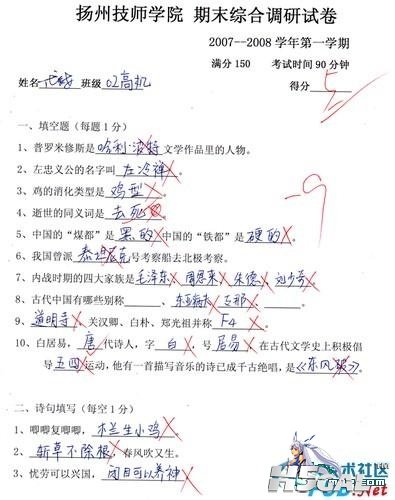 扬州技师学院 期末综合调研试卷
2007--2008 学年第一学期
满分 150 考试时间 90 分钟
姓名 班级 02高机 得分 5
一、填空题(每题 1 分)
1、普罗米修斯是哈利·波特文学作品里的人物。
2、左忠义公的名字叫 左冷禅 。
-9
3、鸡的消化类型是 鸡型 。
4、逝世的同义词是 去死 。
5、中国的“煤都”是 黑的 中国的“铁都”是 硬的 。
6、我国曾派 泰坦尼克 号考察船去北极考察。
7、内战时期的四大家族是 毛泽东 周恩来 朱德 刘少奇 。
8、古代中国有哪些别称 、 东亚病夫 、 支那 、 。
9、 道明寺 、关汉卿、白朴、郑光祖并称 F4 。
10、白居易, 唐 代诗人,字 白 ,号 居易 ,在古代文学史上积极倡
导 五四 运动,他有一首描写音乐的诗已成千古绝唱,是《东风破》。
二、诗句填写(每空 1 分)
1、唧唧复唧唧, 木兰生小鸡 。
2、 斩草不除根 ,春风吹又生。
3、忧劳可以兴国, 闭目可以养神 。
术社区
.Net